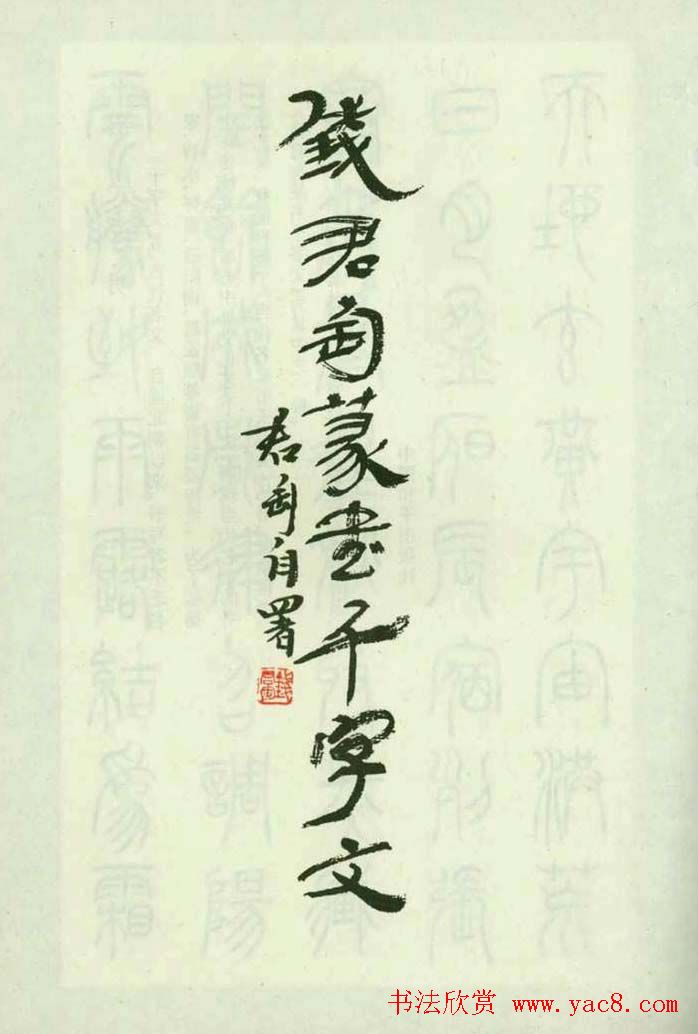 錢君匋篆書千字文
君匋自署
书法欣赏 www.yac8.com